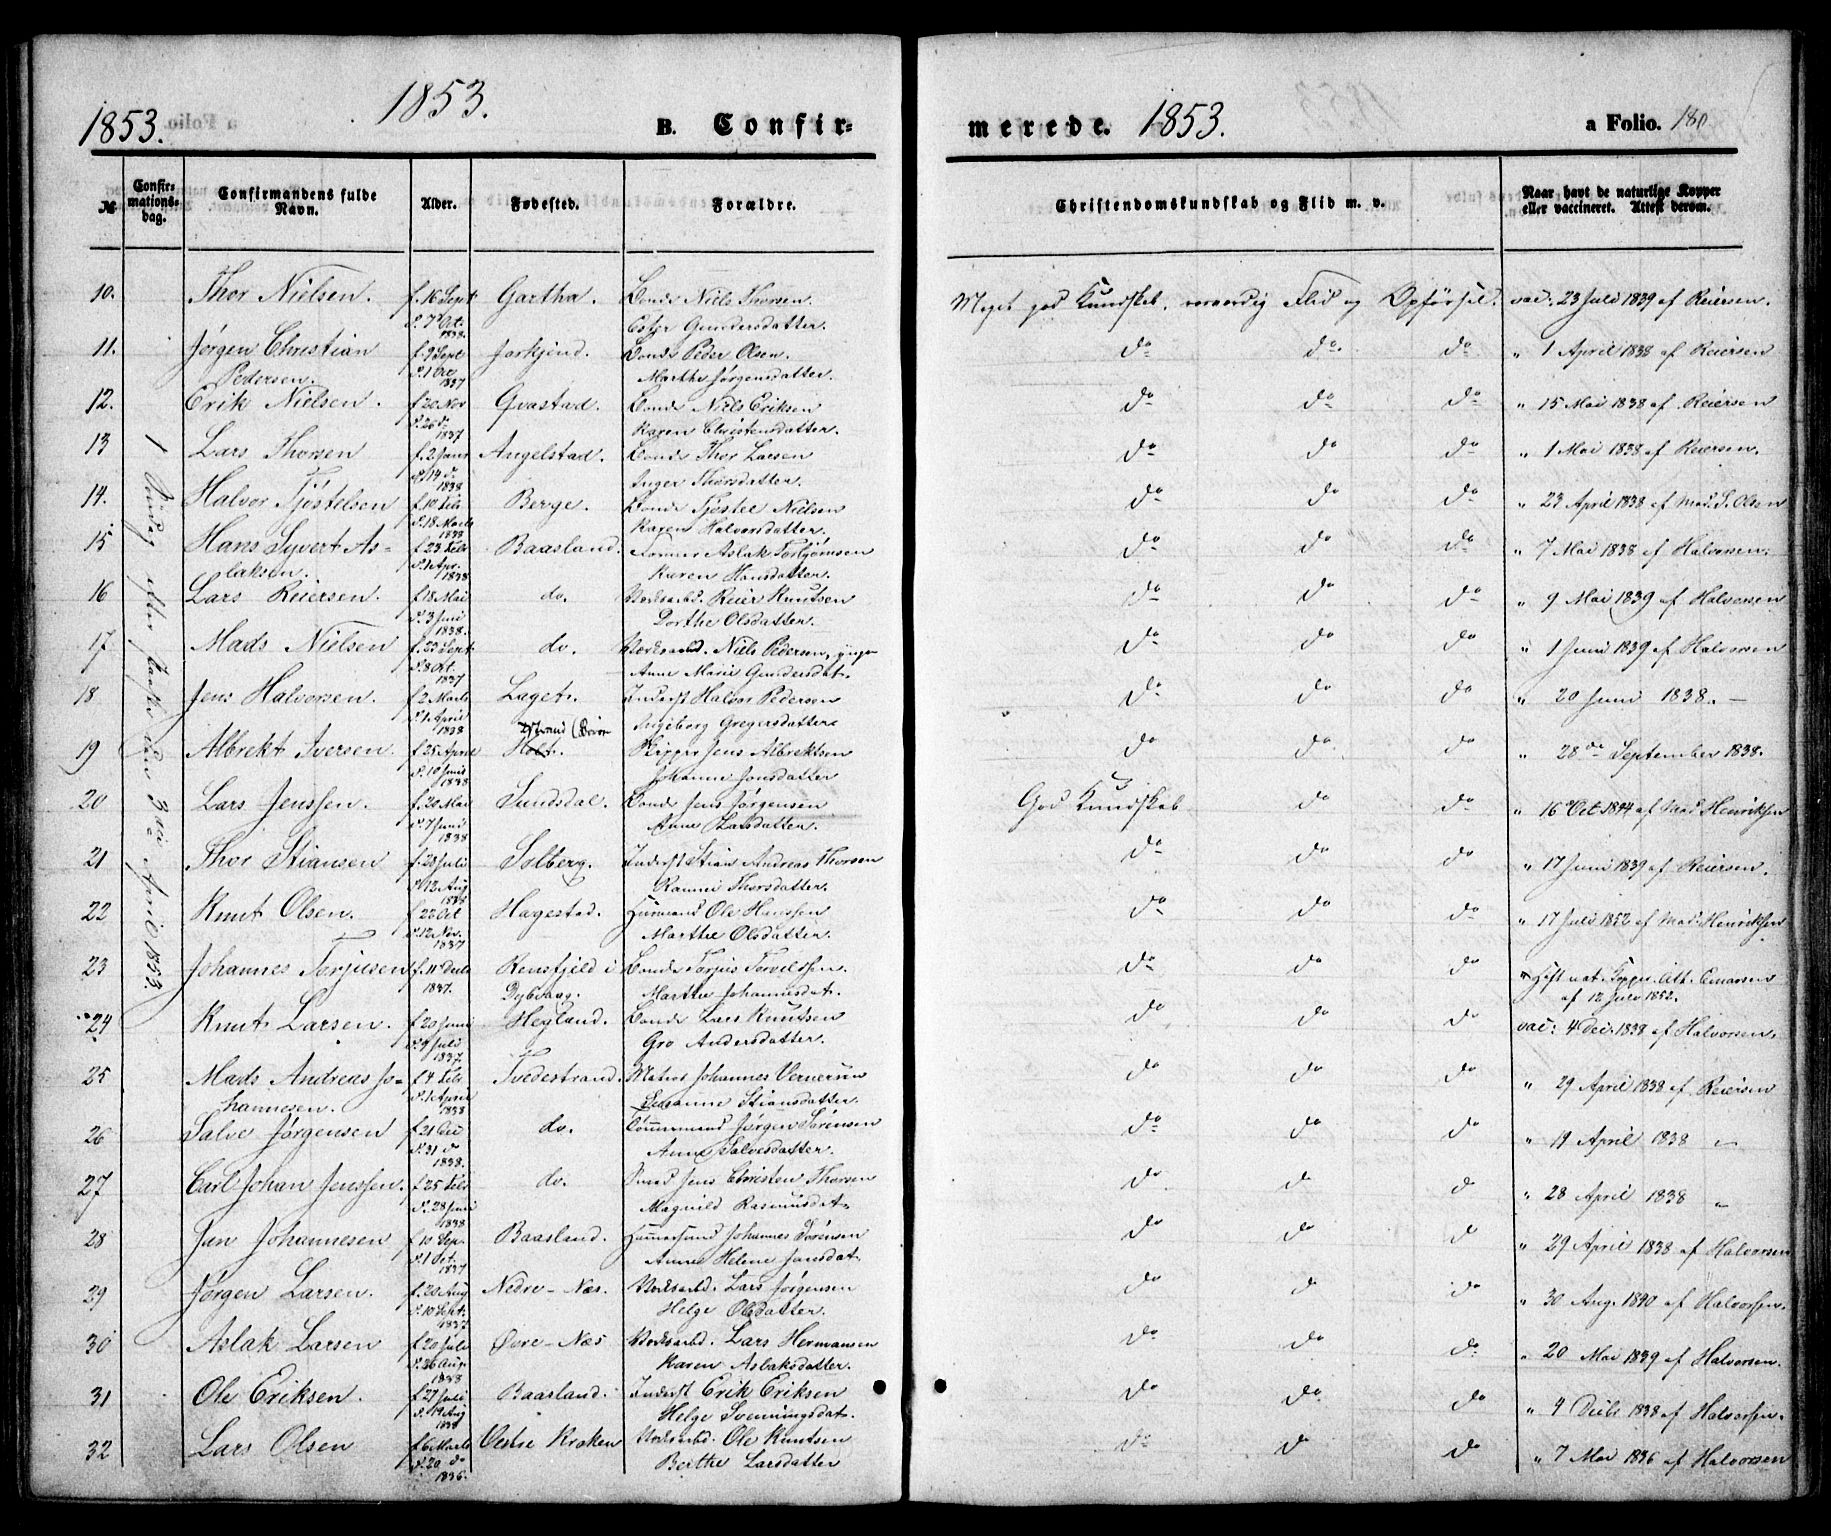 1853.
1853.
B. Confir-
merede. 1853.
a Folio. 180
№
Confir-
mations-
dag.
Confirmandens fulde
Navn.
Alder.
Fødested.
Forældre.
Christendomskundskab og Flid m. v.
Naar havt de naturlige Kopper
eller vaccineret. Attest derom.
1 Søndag efter Paaske den 3die April 1853.
10. Thor Nielsen. f. 16 Sept Gartha. Bonde Niels Thorsen Meget god Kundskab. Flid og Opførsel. vac: 23 Juli 1839 af Reiersen.
d. 7 Oct. 1838 Gundersdatter.
11. Jørgen Christian f. 9 Sept Bonde Peder Olsen. do do. do " 1 April 1838 af Reiersen
Pedersen. d. 1 1837 Marthe Jørgensdatter.
12. Erik Nielsen. f. 20 Nov Gvastad. Bonde Niels Eriksen do do do " 15 Mai 1838 af Reiersen
d. 26 d. 1837 Karen Christensdatter.
13 Lars Thorsen f. 2 Janr Angelstad. Bonde Thor Larsen do do do " 1 Mai 1838 af Reiersen.
d. 14 d. 1838 Inger Thorsdatter.
14. Halvor Tjøstelsen f. 10 Feb Berge. Bonde Tjøstel Nielsen do do do " 23 April 1838 af Mad. S. Olsen
d. 18 Marts 1838 Karen Halvorsdatter.
15 Hans Syvert As- f. 23 Feb Baasland. Aslak Torbjørnsen do do do " 7 Mai 1838 af Halvorsen.
laksen. d. 1 Apr. 1838 Karen Hansdatter.
16 Lars Reiersen. f. 18 Mai do. Værksarbd. Reier Knutsen do do do " 9 Mai 1839 af Halvorsen
d. 3 Juni 1838. Dorthe Olsdatter.
17 Mads Nielsen f. 23 Sept do. Værksarbd. Niels Pedersen, yngre do do do " 1 Juni 1839 af Halvorsen
d. 8 Oct. 1837 Anne Marie Gundersdat.
18 Jens Halvorsen. f. 2 Marts Laget. Inderst Halvor Pedersen do do do " 20 Juni 1838. —
d. 1 April 1838 Ingeborg Gregersdatter
19 Albrekt Iversen. f. 25 April Holt. Skipper Jens Albrektsen do do. do " 28de September 1838.
d. 10 Juni 1838 Johanne Jensdatter
20 Lars Jenssen. f. 20 Mai Sundsdal. Bonde Jens Jørgensen God Kundskab do do " 16 Oct 1844 af Mad Henriksen
d. 7 Juni 1838 Anne Larsdatter.
21 Thor Stiansen f. 28 Juli Solberg. Inderst Stian Andreas Thorsen do do do " 17 Juni 1839 af Reiersen.
d. 12 Aug 1838 Thorsdatter.
22 Knut Olsen. f. 22 Oct Hagestad. Huusmand Ole Hanssen do do do " 17 Juli 1852 af Mad. Henriksen
d. 12 Nov. 1837 Marthe Olsdatter.
23 Johannes Torjusen f. 11 Decb Rensfjeld i Bonde Torjus do do do Havt nat. Kopper. Att.
1837. Dybvaag. Marthe Johannesdat. af 12 July 1852.
24 Knut Larsen. f. 20 Juni Hegland. Bonde Lars Knutsen do do do vac: 4 Dec. 1838 af Halvorsen.
d. 9 Juli 1837. Gro Andersdatter.
25 Mads Andreas Jo- f. 4 Feb Tvedestrand. Matros Johannes do do do " 29 April 1838 af Reiersen
hannesen. d. 1 April 1838 Susanne Stiansdatter.
26 Salve Jørgensen f. 21 do. Tømmermand Jørgen Sørensen do do do " 19 April 1838 "
d. 31 d 1838. Anne Salvesdatter.
27 Carl Johan Jenssen. f. 25 Feb do. Smed Jens Christen Thorsen do do d " 28 April 1838 "
d. 28 Juni 1838 Magnild Rasmusdat.
28 Jan Johannesen f. 10 Sep. Baasland. Johannes Sørensen do do d " 29 April 1838 af Halvorsen
d. 1 Oct. 1837 Anne Helene Jansdat.
29 Jørgen Larsen. f. 20 Aug Nedre-Næs. Værksarbd. Lars Jørgensen do d do " 30 Aug. 1840 af Halvorsen.
d. 10 Sept. 1837. Helge Olsdatter.
30 Aslak Larsen f. 20 Juli Øvre-Næs Værksarbd. Lars Hermansen do do do " 20 Mai 1839 af Halvorsen.
d. 26 Aug. 1838 Karen Aslaksdatter.
31 Ole Eriksen. f. 27 Juli Baasland. Inderst Erik Eriksen do do. do " 4 Decb 1838 af Halvorsen.
d. 19 Aug Helge Svenningsdat.
32 Lars Olsen f. 6 Marts Vestre Kroken Værksarbd. Ole Knutsen do do do " 7 Mai 1836 af Halvorsen
d. 20 do 1836. Berthe Larsdatter